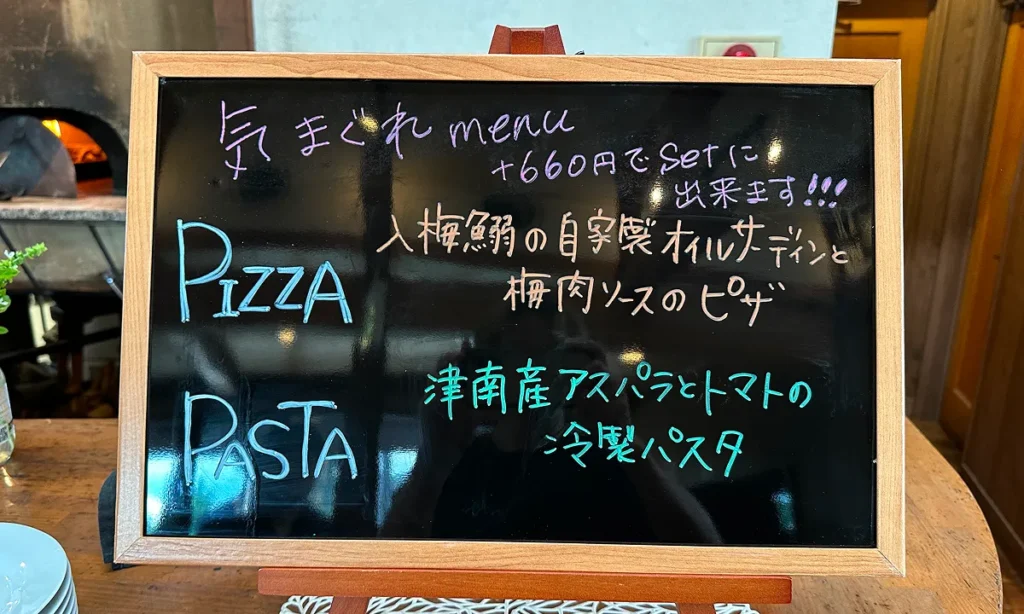 気まぐれmenu
+660円でsetに
出来ます!!!
PIZZA
入梅鰯の自家製オイルサーディンと
梅肉ソースのピザ
PASTA
津南産アスパラとトマトの
冷製パスタ